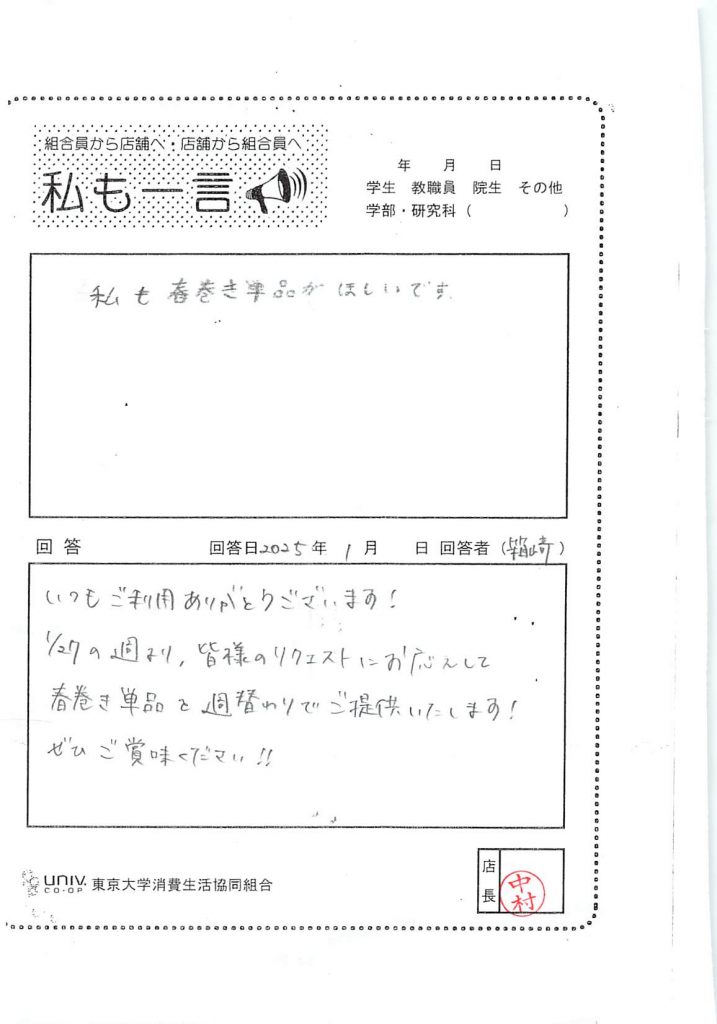 組合員から店舗へ・店舗から組合員へ
私も一言
年 月 日
学生 教職員 院生 その他
学部・研究科（ ）
私も春巻き単品がほしいです
回答 回答日2025年1月 日 回答者（箱崎）
いつもご利用ありがとうございます！
1/27の週より、皆様のリクエストにお応えして
春巻き単品を週替わりでご提供いたします！
ぜひご賞味ください!!
UNIV. CO-OP 東京大学消費生活協同組合
店長
中村